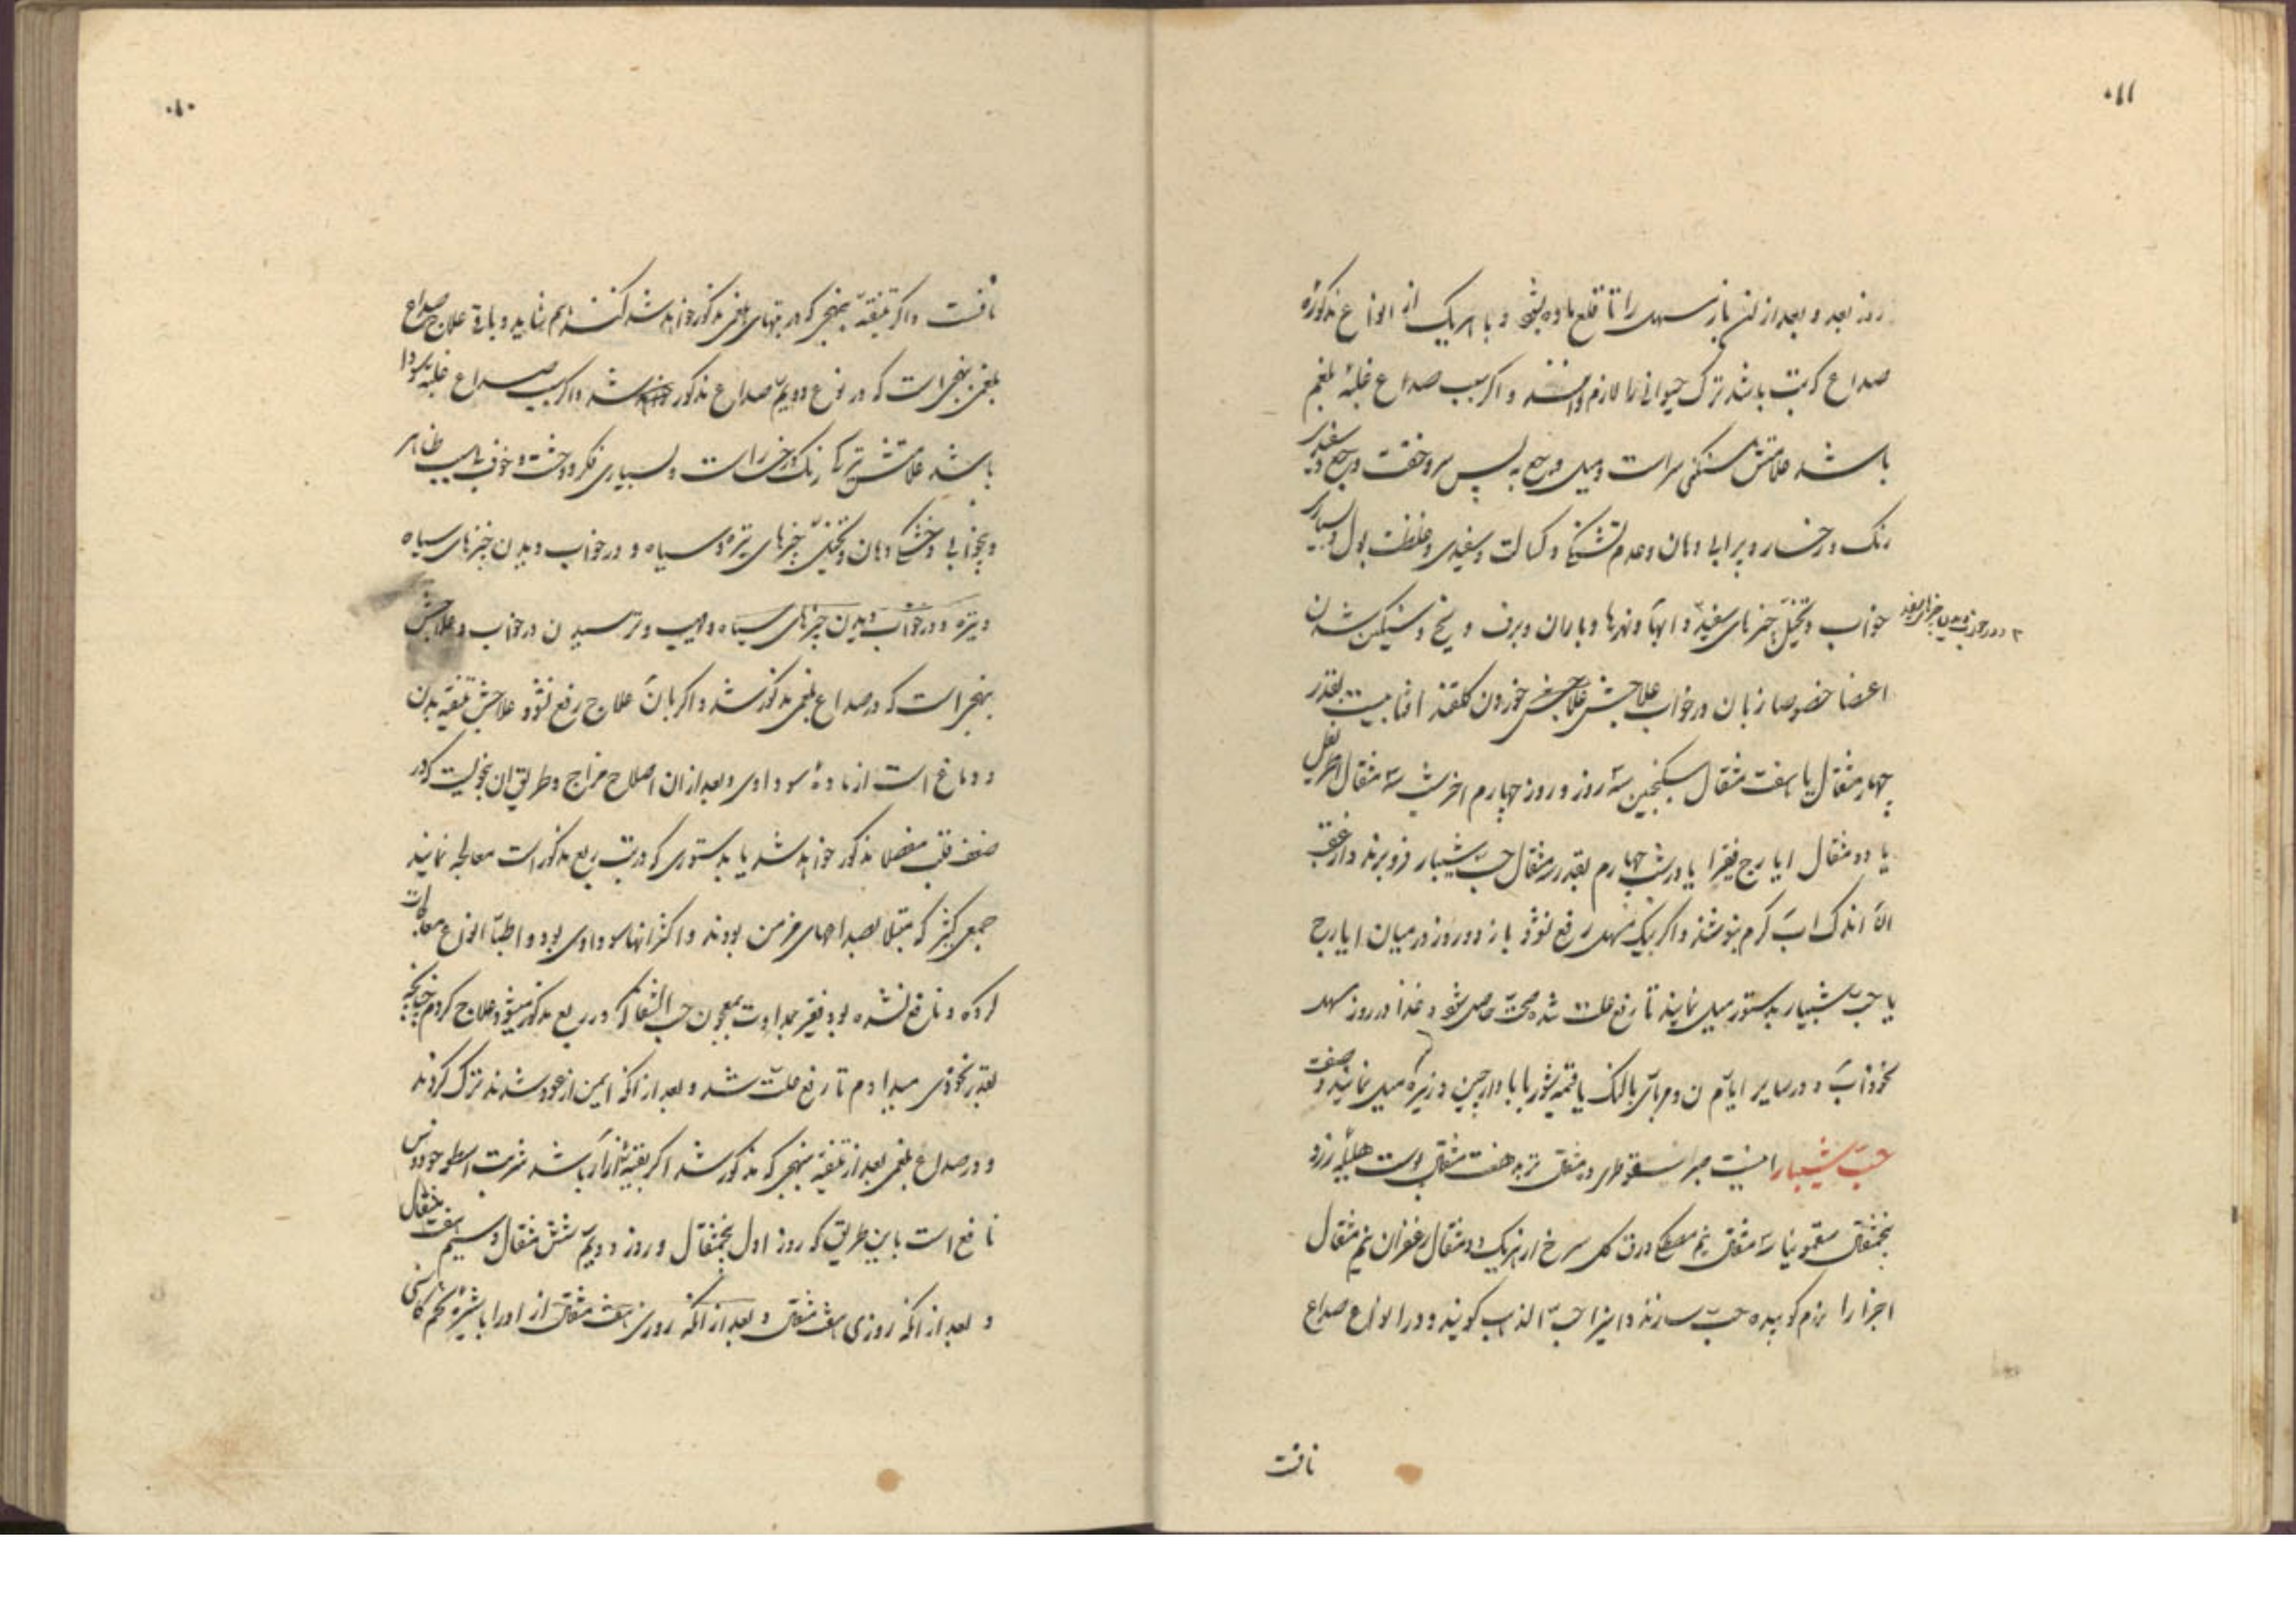 روز بعد و بعد از ان باز مسهل را تا قلع ماده بشود و با هر یک از انواع مذکوره
صداع که تب باشد ترک حیوانی را لازم دانند و اگر سبب صداع غلبهٔ بلغم
باشد علامتش سنکینی سر است و میل وجع به پس سر و خفت وجع و سفیدی
رنک رخسار و پرابی دهان و عدم تشنکی و کسالت و سفیدی و غلظت بول و بسیاری
خواب و تخیل چیزهای سفید و ابها و نهرها و باران و برف و یخ و سنکین شدن
و در خواب دیدن چیزهای سفید
اعضا خصوصا زبان در خواب علاجش خوردن کلقند افتابیست بقدر
چهار مثقال یا هفت مثقال سکنجبین سه روز و روز چهارم اخر شب سه مثقال اطریفل
یا دو مثقال ایارج فیقرا یا در شب چهارم بقدر مثقال حب شبیار فرو برند و از عقب
ان اندک اب کرم بنوشند و اکر بیک مسهل رفع نشود باز دو روز در میان ایارج
یا حب شبیار بدستور میل نمایند تا رفع علت شده صحت حاصل شود و غذا در روز مسهل
نخوداب و در سایر ایام نان و مربای بالنک یا قیمه شوربا با دارچین و زیره میل نمایند و صفت
حب شبیار اینست صبر سقوطری ده مثقال تربد هفت مثقال پوست هلیله زرد
پنجمثقال سقمونیا سه مثقال نیم مصطکی ورق کل سرخ از هر یک دو مثقال زعفران نیم مثقال
اجزا را نرم کوبیده حب سازند و اینرا حب الذهب کویند و در انواع صداع
نافست
نافست و اکر تنقیه بنهجی که در تبهای بلغمی مذکور خواهد شد کنند هم شاید و باقی علاج صداع
بلغمی بنهجی است که در نوع دویم صداع مذکور شد و اکر سبب صداع غلبه سودا
باشد علامتش تیرکی رنک رخسار است و بسیاری فکر و وحشت و خوف بی سبب ظاهر
و بیخوابی و خشکی دهان و تخیل چیزهای تیره و سیاه و در خواب دیدن چیزهای سیاه
و تیره و در خواب دیدن چیزهای سیاه و مهیب و ترسیدن در خواب و علاجش
بنهجی است که در صداع بلغمی مذکور شد و اکر بان علاج رفع نشود علاجش تنقیه بدن
و دماغ است از ماده سوداوی و بعد از ان اصلاح مزاج و طریق ان بنحویست که در
ضعف قلب مفصلا مذکور خواهد شد یا بدستوری که در تب ربع مذکور است معالجه نمایند
جمعی کثیر که مبتلا بصداعهای مزمن بودند و اکثر انها سوداوی بود و اطبا انواع معالجات
کرده و نافع نشده بود فقیر بمداومت معجون حب الشفا که در ربع مذکور میشود علاج کردم چنانچه
بقدر نخودی میدادم تا رفع علت شد و بعد از انکه ایمن از عود شدند ترک کردند
و در صداع بلغمی بعد از تنقیه بنهجی که مذکور شد اکر بقیه از ازار باشد شربت اسطوخودوس
نافع است باین طریق که روز اول پنجمثقال و روز دویم شش مثقال و سیم هفت مثقال
و بعد از انکه روزی هفت مثقال و بعد از انکه روزی هفت مثقال از او را با شیره تخم کاسنی